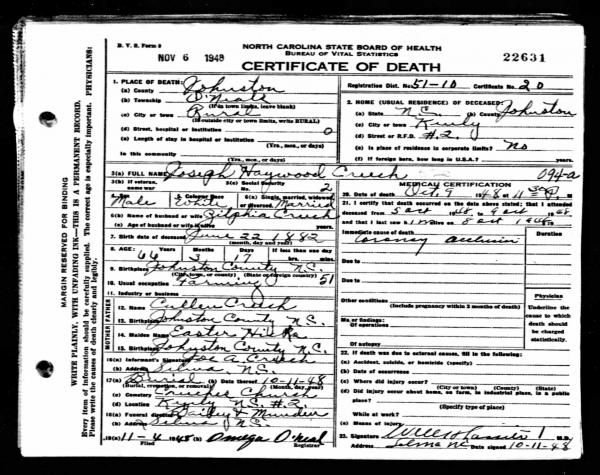 B. V. S. Form 8
NOV 6 1948
NORTH CAROLINA STATE BOARD OF HEALTH
BUREAU OF VITAL STATISTICS
CERTIFICATE OF DEATH
22631
MARGIN RESERVED FOR BINDING
WRITE PLAINLY, WITH UNFADING INK—THIS IS A PERMANENT RECORD.
Every item of information should be carefully supplied. The correct age is especially important. PHYSICIANS:
Please write the causes of death clearly and legibly.
1. PLACE OF DEATH:
(a) County Johnston
(b) Township O'Neals
(c) City or town Rural
(If outside city or town limits, write RURAL)
(d) Street, hospital or institution 0
(e) Length of stay in hospital or institution
(Yrs., mos., or days)
In this community
(Yrs., mos., or days)
Registration Dist. No. 51-10 Certificate No. 20
2. HOME (USUAL RESIDENCE) OF DECEASED:
(a) State N.C. (b) County Johnston
(c) City or town Kenly
(d) Street or R.F.D. #2
(e) Is place of residence in corporate limits? No
(f) If foreign born, how long in U.S.A.? yrs.
3(a) FULL NAME Joseph Haywood Creech
094-a
3(b) If veteran, name war
3(c) Social Security No. 2
4. Sex Male
5. Color or Race White
6(a) Single, married, widowed or divorced Married
6(b) Name of husband or wife Zilphia Creech
6(c) Age of husband or wife if alive
7. Birth date of deceased June 22 1882
(month, day and year)
8. AGE: Years 66 Months 3 Days 17 If less than one day hrs. min.
9. Birthplace Johnston County N.C.
(City, town, or county) (State or foreign country)
10. Usual occupation Farming 51
11. Industry or business
FATHER
12. Name Cullen Creech
13. Birthplace Johnston County N.C.
MOTHER
14. Maiden Name Easter
15. Birthplace Johnston County N.C.
16(a) Informant's Signature Joe A. Creech
(b) Address Selma, N.C.
17(a) Burial (b) Date thereof 10-11-48
(Burial, cremation, or removal) (Month, day, year)
(c) Cemetery Church
(d) Location Kenly N.C. #2
18(a) Funeral director
(b) Address Selma N.C.
19(a) 11-4 1948 (b) Omega O'Neal
Filed Registrar
MEDICAL CERTIFICATION
20. Date of death Oct. 9 1948
21. I certify that death occurred on the date above stated; that I attended
deceased from 5 Oct 1948 to 9 Oct 1948
and that I last saw him alive on 8 Oct 1948
Immediate cause of death Duration
Coronary occlusion
Due to
Due to
Other conditions
(Include pregnancy within 3 months of death)
Major findings:
Of operations
Of autopsy
Physician
Underline the cause to which death should be charged statistically.
22. If death was due to external causes, fill in the following:
(a) Accident, suicide, or homicide (specify)
(b) Date of occurrence
(c) Where did injury occur?
(City or town) (County) (State)
(d) Did injury occur about home, on farm, in industrial place, in a public place?
(Specify type of place)
While at work?
(e) Means of injury
23. Signature M.D.
Address Selma NC Date signed 10-11-48